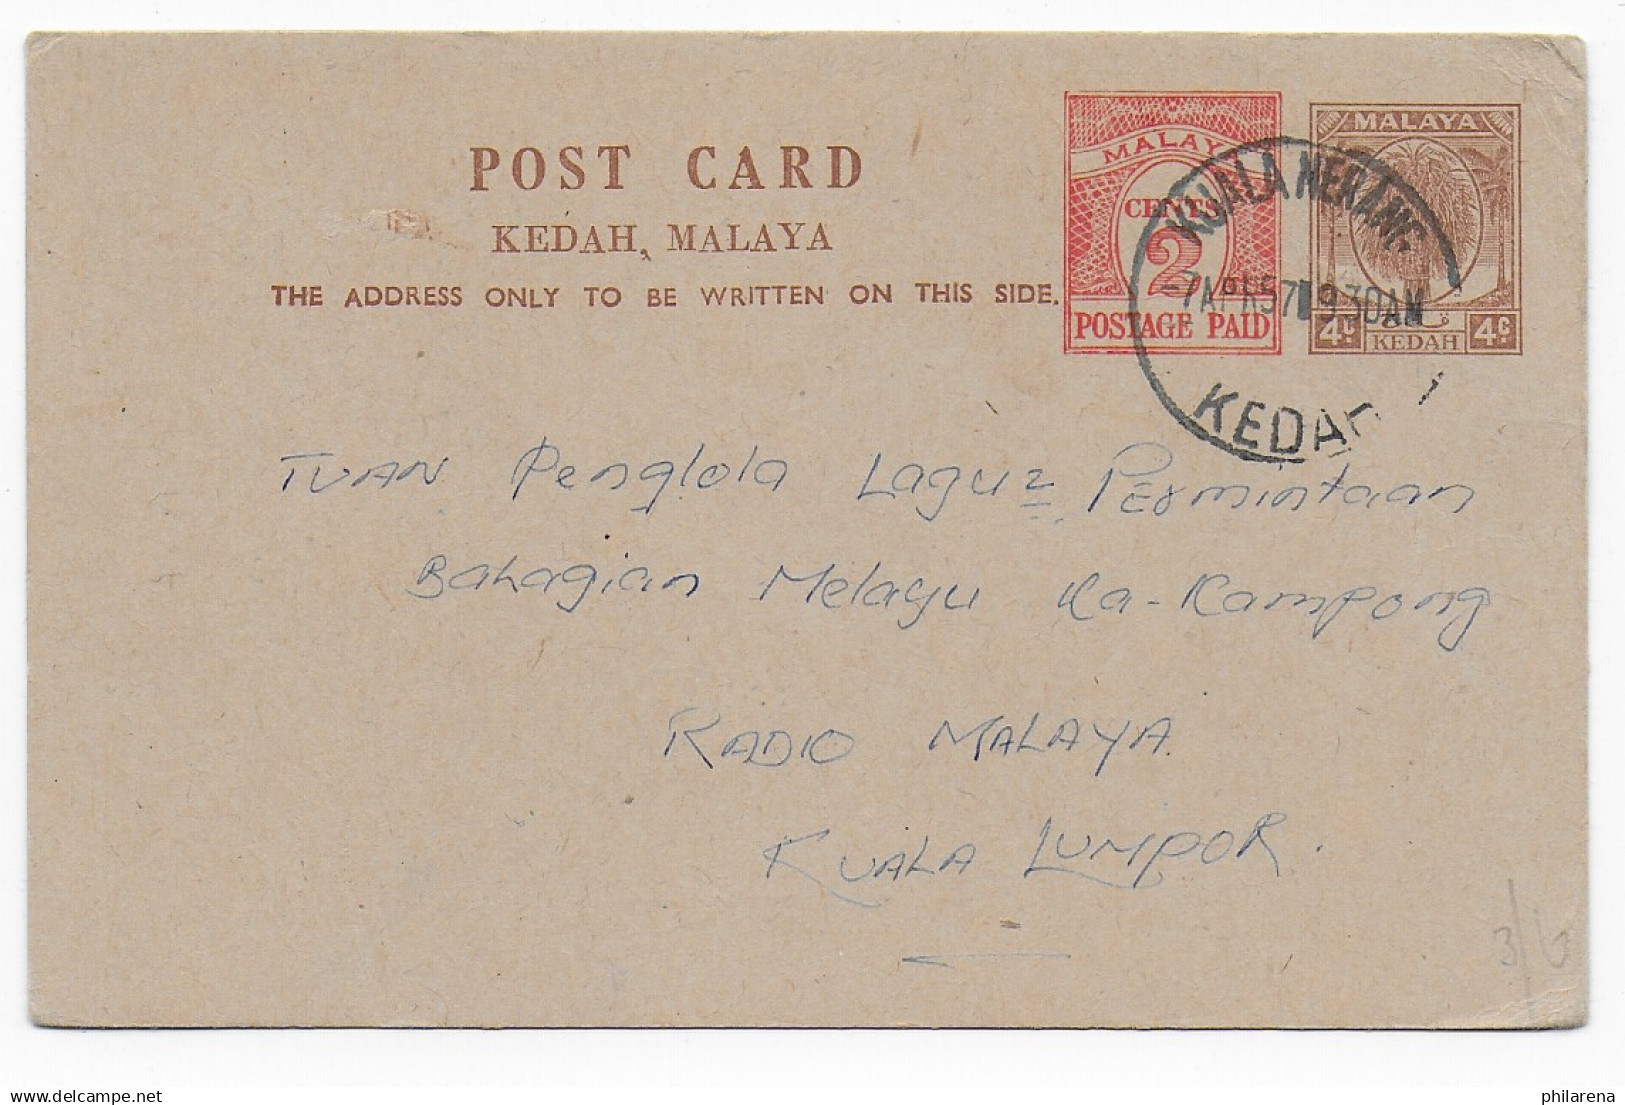 POST CARD
KEDAH, MALAYA
THE ADDRESS ONLY TO BE WRITTEN ON THIS SIDE.
MALAYA
CENTS
2
POSTAGE PAID
MALAYA
4c KEDAH 4c
KUALA NERANG
7 APR 57 930AM
KEDAH
TUAN Penglola Lagu2 Permintaan
Bahagian Melayu Ka-Kampong
RADIO MALAYA
KUALA LUMPOR.
3/6
www.delcampe.net
philarena